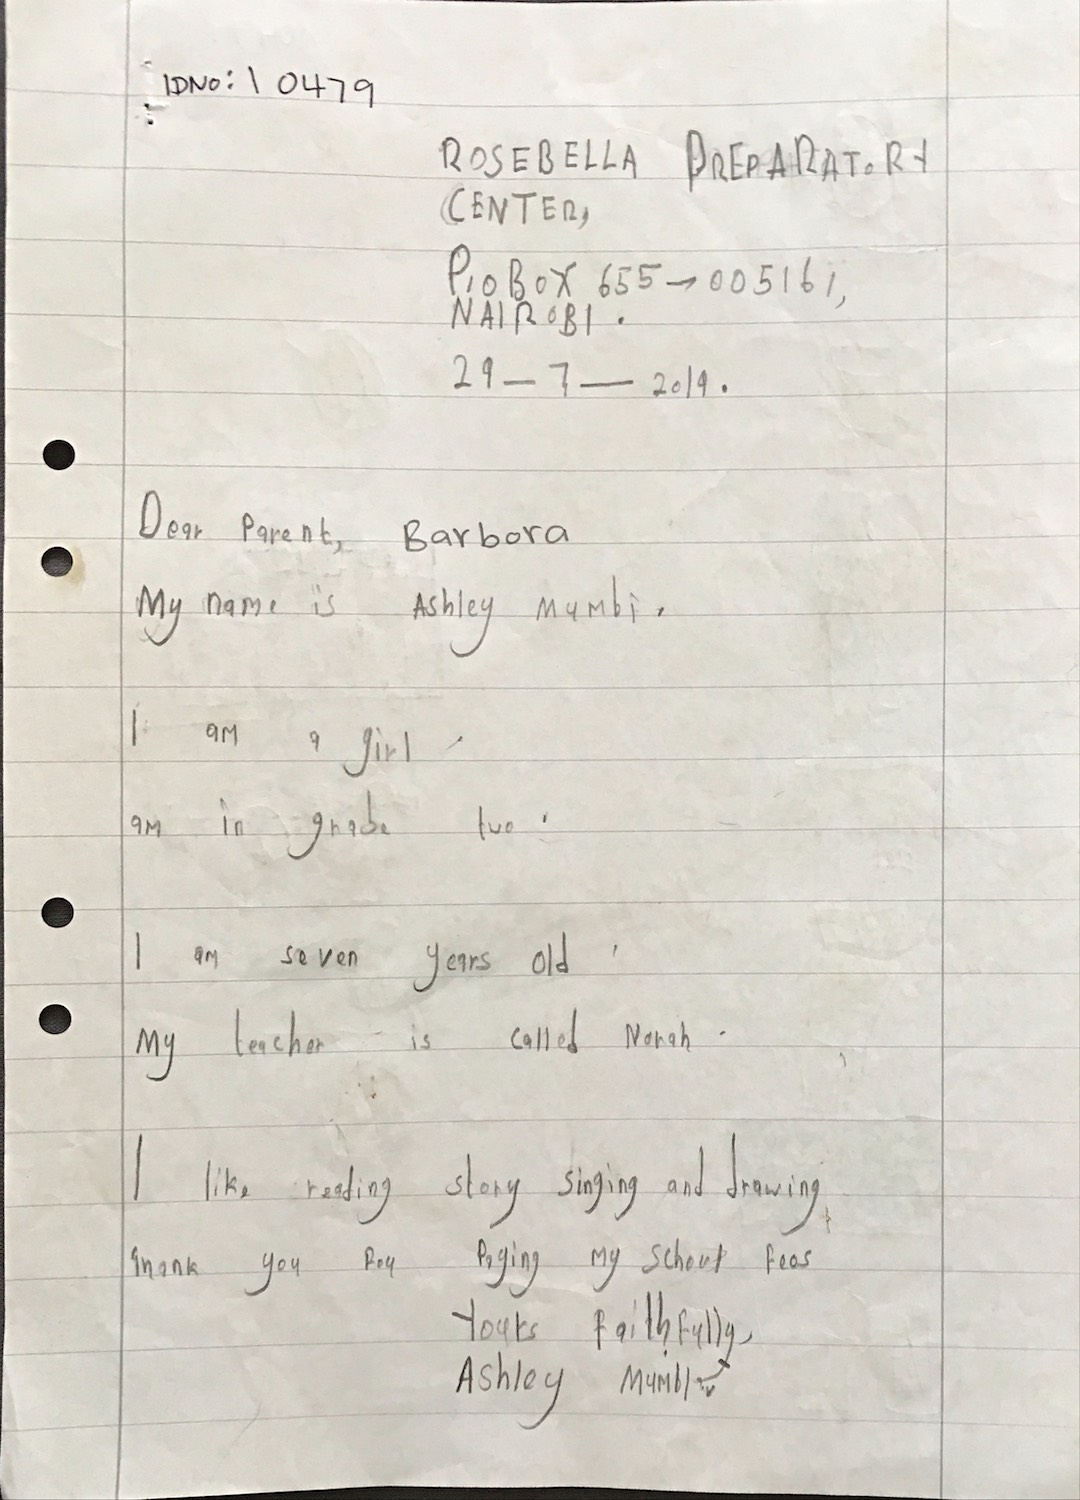 IDNO: 10479
ROSEBELLA PREPARATORY
CENTER,
P.O BOX 655-00516 1,
NAIROBI.
29-7-2019.
Dear Parent, Barbora
My name is Ashley Mumbi.
I am a girl.
am in grade two.
I am seven years old.
My teacher is called Norah.
I like reading story singing and drawing
Thank you for Paying my school fees
Yours faithfully,
Ashley Mumbi